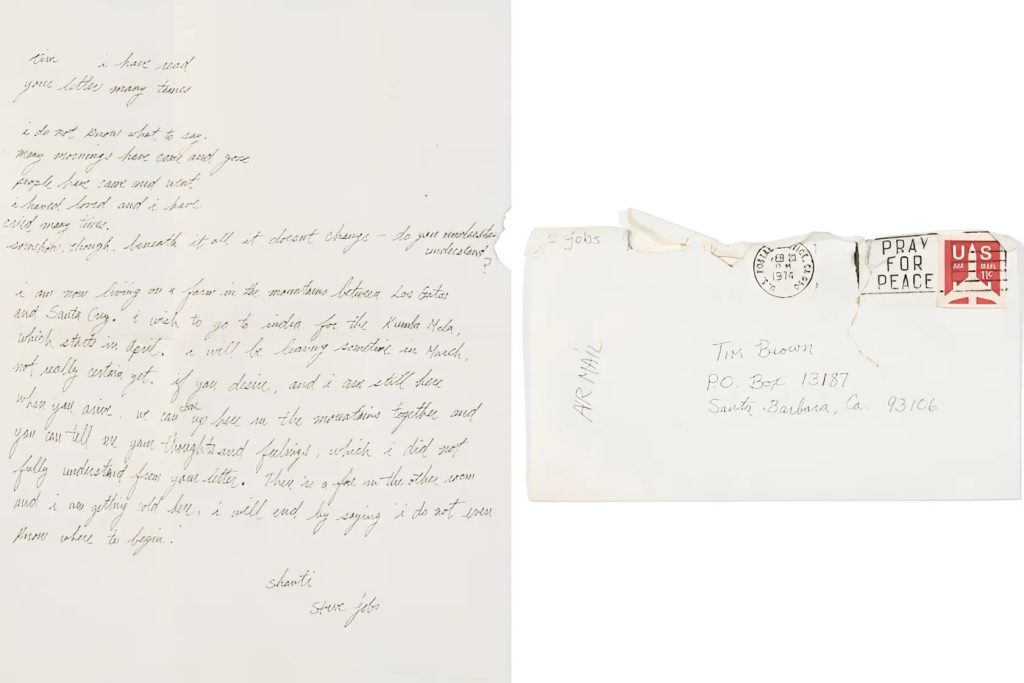 tim i have read
your letter many times
i do not know what to say.
many mornings have come and gone
people have came and went
i haved loved and i have
cried many times.
somehow, though, beneath it all it doesnt change — do you
understand?
i am now living on a farm in the mountains between Los Gatos
and Santa Cruz. i wish to go to india for the Kumba Mela,
which starts in April. i will be leaving sometime in March,
not really certain yet. if you desire, and i am still here
when you arive, we can come up here in the mountains together and
you can tell me your thoughts and feelings, which i did not
fully understand from your letter. There is a fire in the other room
and i am getting cold here. i will end by saying i do not even
know where to begin.
shanti
steve jobs
s jobs
U.S. POSTAL SERVICE, CA
PM
1974
PRAY
FOR
PEACE
US
AIR MAIL
11¢
AIR MAIL
Tim Brown
P.O. Box 13187
Santa Barbara, Ca. 93106